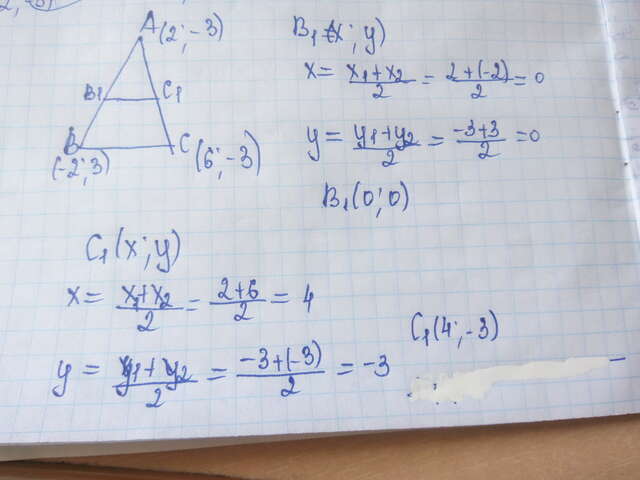 A(2; -3)
B1 C1
B C
(-2; 3) (6; -3)
B1(x; y)
x = x1+x2/2 = 2+(-2)/2 = 0
y = y1+y2/2 = -3+3/2 = 0
B1(0; 0)
C1(x; y)
x = x1+x2/2 = 2+6/2 = 4
y = y1+y2/2 = -3+(-3)/2 = -3
C1(4; -3)